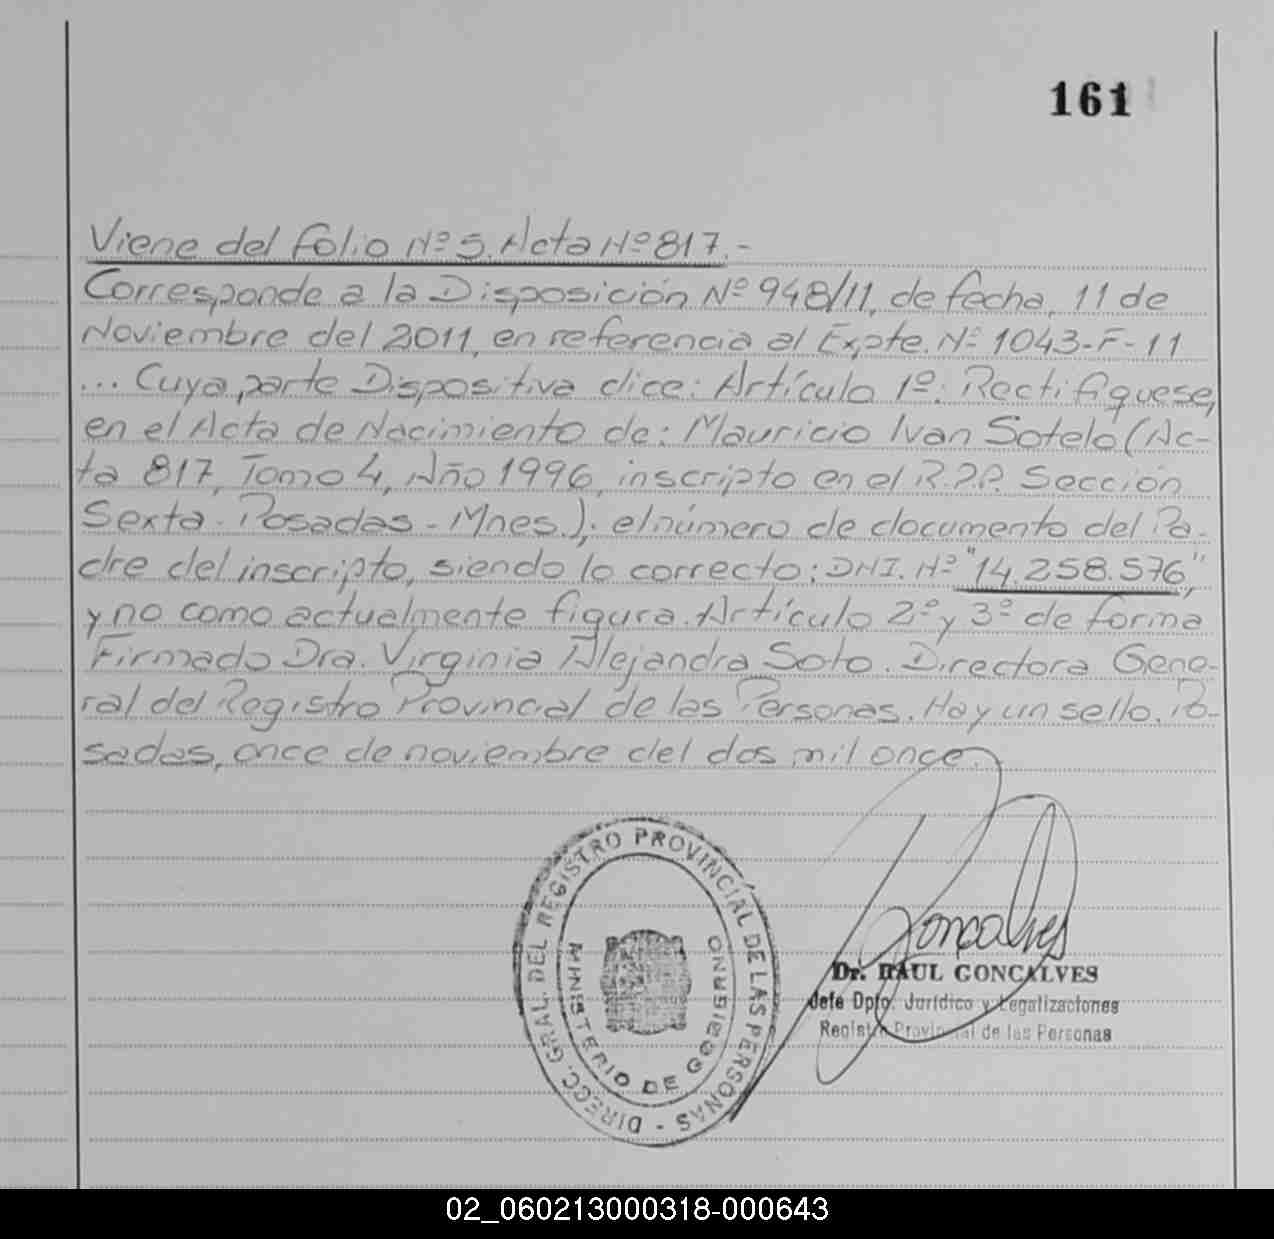 161
Viene del folio Nº 5. Acta Nº 817.-
Corresponde a la Disposición Nº 948/11, de fecha, 11 de
Noviembre del 2011, en referencia al Expte. Nº 1043-F-11
... Cuya parte Dispositiva dice: Artículo 1º: Rectifiquese,
en el Acta de Nacimiento de: Mauricio Ivan Sotelo (Ac-
ta 817, Tomo 4, Año 1996, inscripto en el R.P.P. Sección
Sexta - Posadas - Mnes.); el número de documento del Pa-
dre del inscripto, siendo lo correcto: DNI. Nº "14.258.576",
y no como actualmente figura. Artículo 2º y 3º de forma
Firmado Dra. Virginia Alejandra Soto. Directora Gene-
ral del Registro Provincial de las Personas. Hay un sello. Po-
sadas, once de noviembre del dos mil once.
DIRECC. GRAL. DEL REGISTRO PROVINCIAL DE LAS PERSONAS -
MINISTERIO DE GOBIERNO
Goncalves
Dr. RAUL GONCALVES
Jefe Dpto. Jurídico y Legalizaciones
Registro Provincial de las Personas
02_060213000318-000643